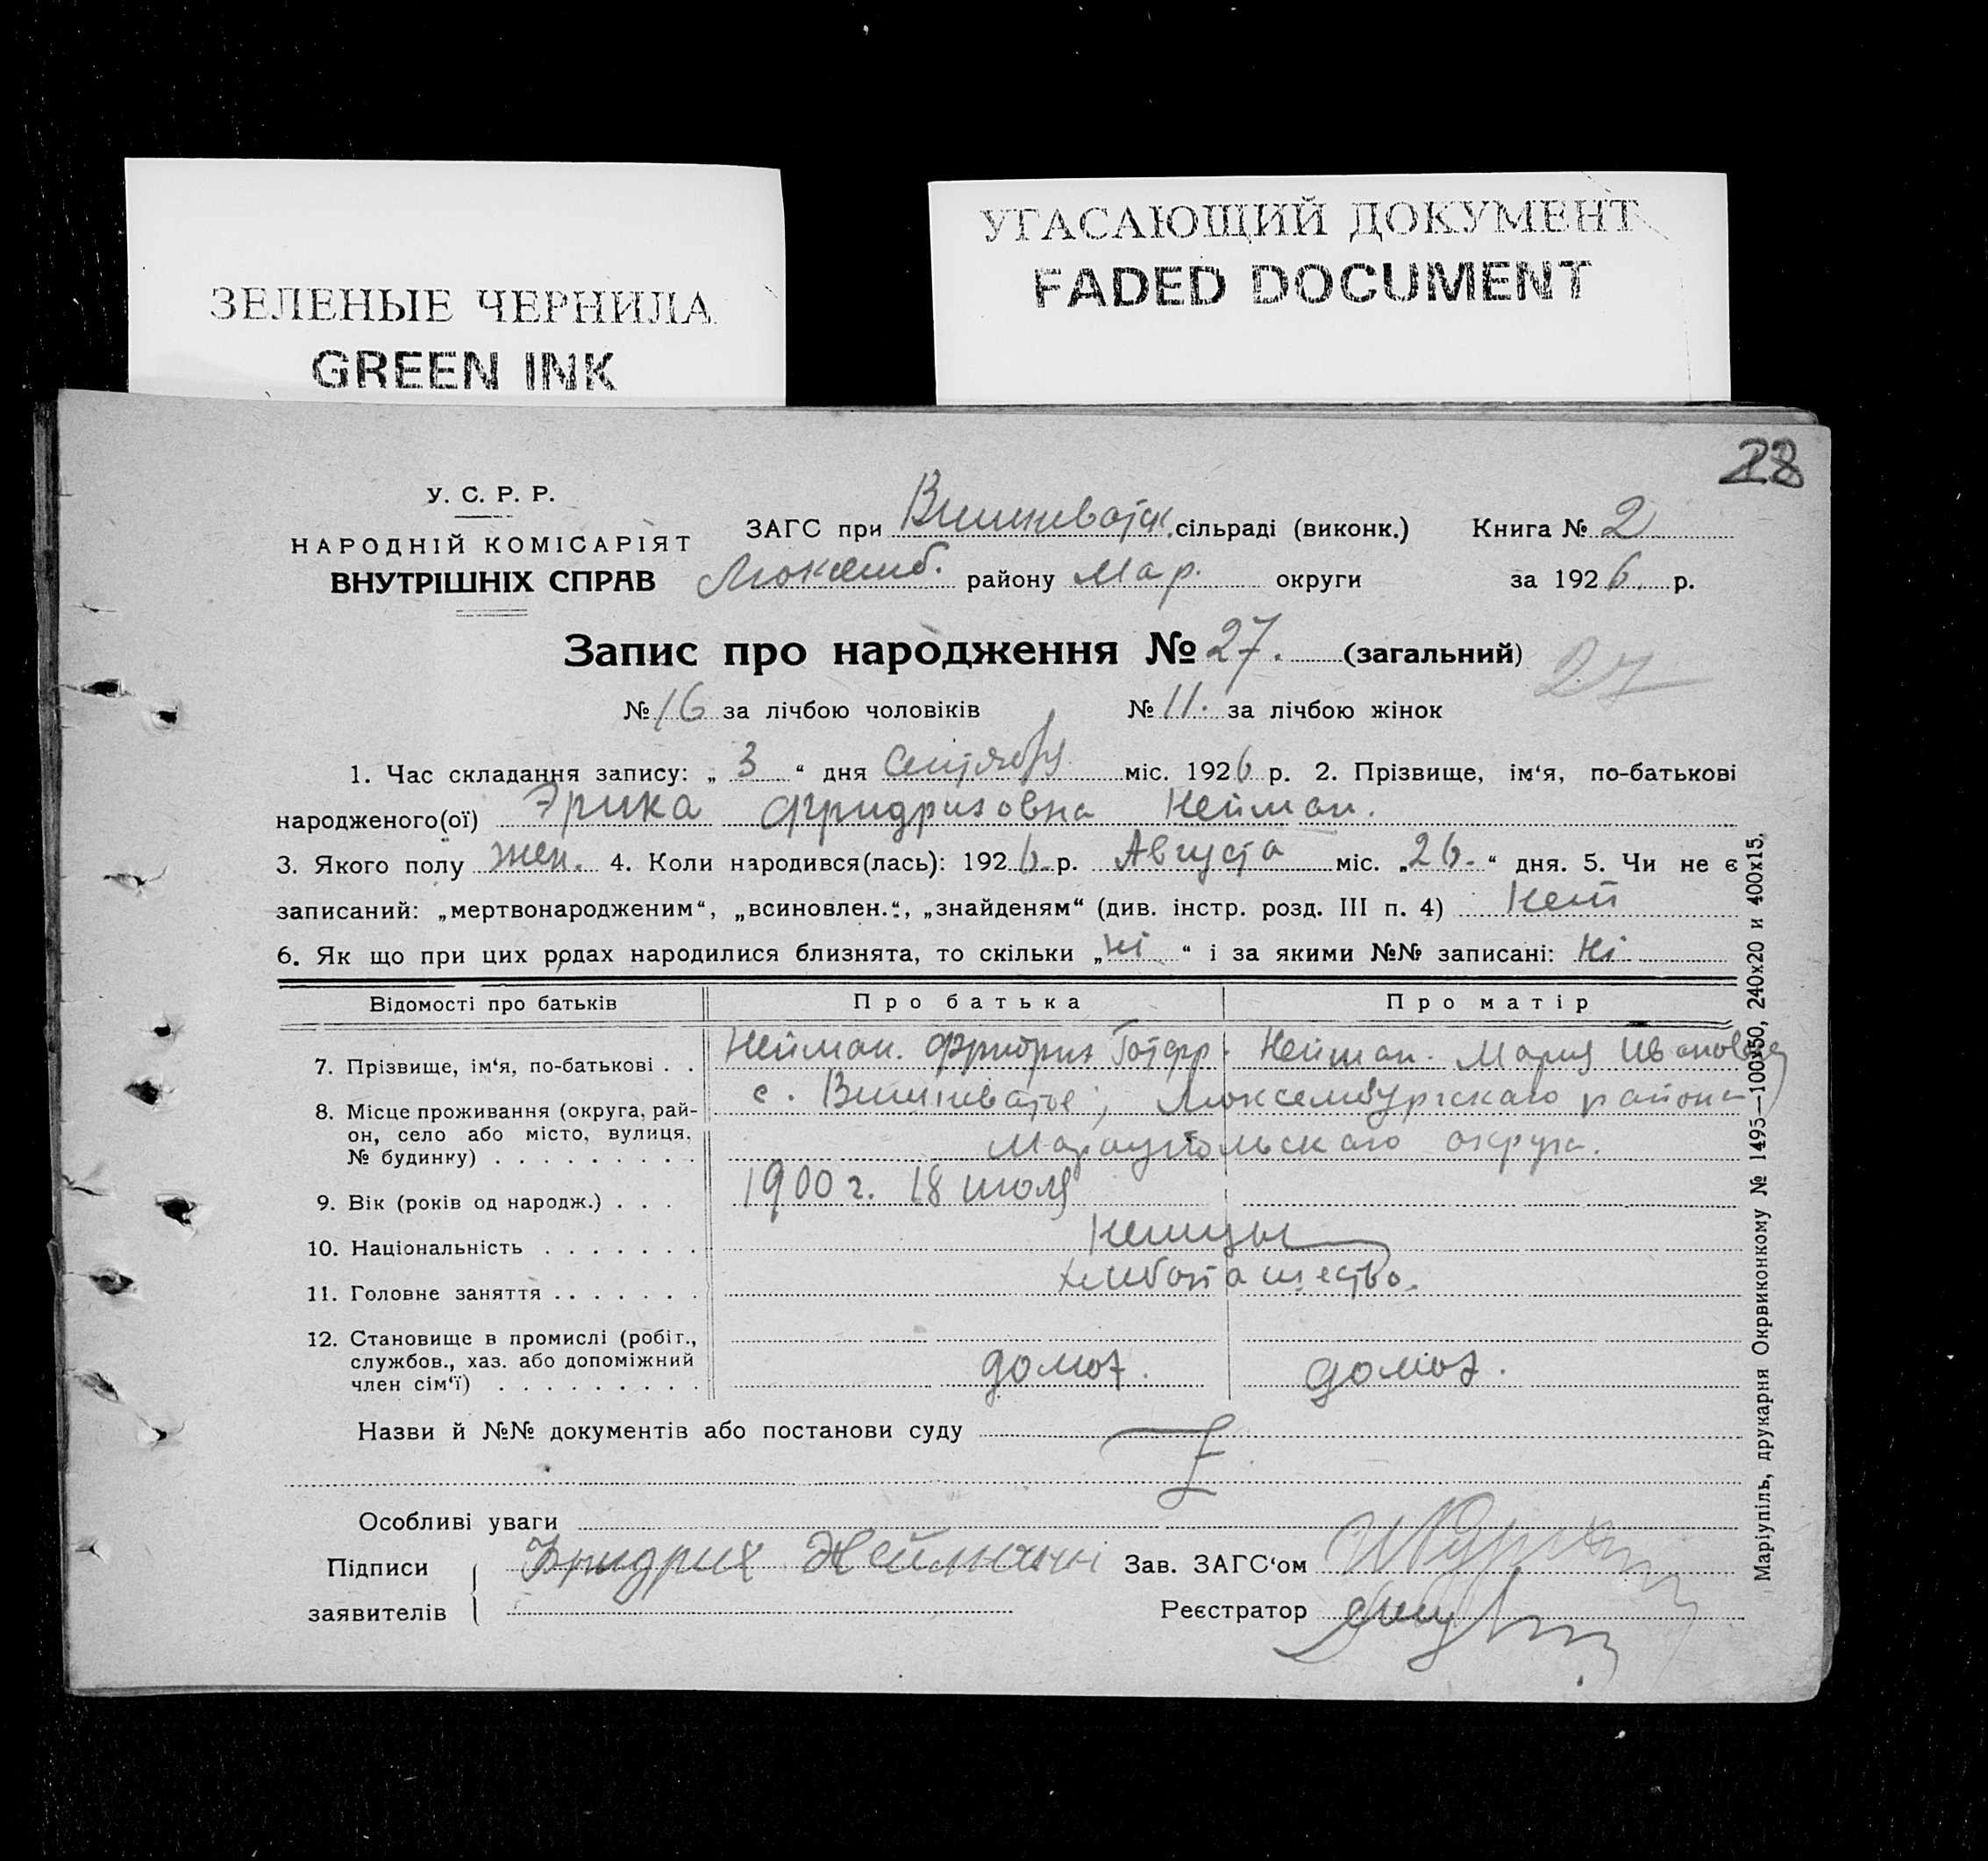 УГАСАЮЩИЙ ДОКУМЕНТ
FADED DOCUMENT
ЗЕЛЕНЫЕ ЧЕРНИЛА
GREEN INK
28
У. С. Р. Р.
НАРОДНІЙ КОМІСАРІЯТ
ВНУТРІШНІХ СПРАВ
ЗАГС при Вишневатск. сільраді (виконк.) Книга № 2
Люксемб. району Мар. округи за 1926 р.
Запис про народження № 27. (загальний) 27
№ 16 за лічбою чоловіків № 11. за лічбою жінок
1. Час складання запису: „ 3 “ дня Сентября міс. 1926 р. 2. Прізвище, ім‘я, по-батькові
народженого(ої) Эрика Фридриховна Нейман.
3. Якого полу жен. 4. Коли народився(лась): 1926 р. Августа міс. „26.“ дня. 5. Чи не є
записаний: „мертвонародженим“, „всиновлен.“, „знайденям“ (див. інстр. розд. III п. 4) Нет
6. Як що при цих родах народилися близнята, то скільки „ні“ і за якими №№ записані: Ні
Відомості про батьків Про батька Про матір
7. Прізвище, ім‘я, по-батькові . . Нейман. Фридрих Готфр. Нейман. Мария Ивановна
8. Місце проживання (округа, рай- с. Вишневатое, Люксембургскаго района
он, село або місто, вулиця,
№ будинку) . . . . . . . . . Мариупольскаго округа.
9. Вік (років од народж.) . . . 1900 г. 18 июля
10. Національність . . . . . . . Немцы
11. Головне заняття . . . . . . . хлебопашество.
12. Становище в промислі (робіт.,
службов., хаз. або допоміжний
член сім‘ї) . . . . . . . . . домох. домох.
Назви й №№ документів або постанови суду
Особливі уваги
Підписи Фридрих Нейманн Зав. ЗАГС‘ом
заявителів Реєстратор
Маріупіль, друкарня Окрвиконкому № 1495—100х50, 240х20 и 400х15.